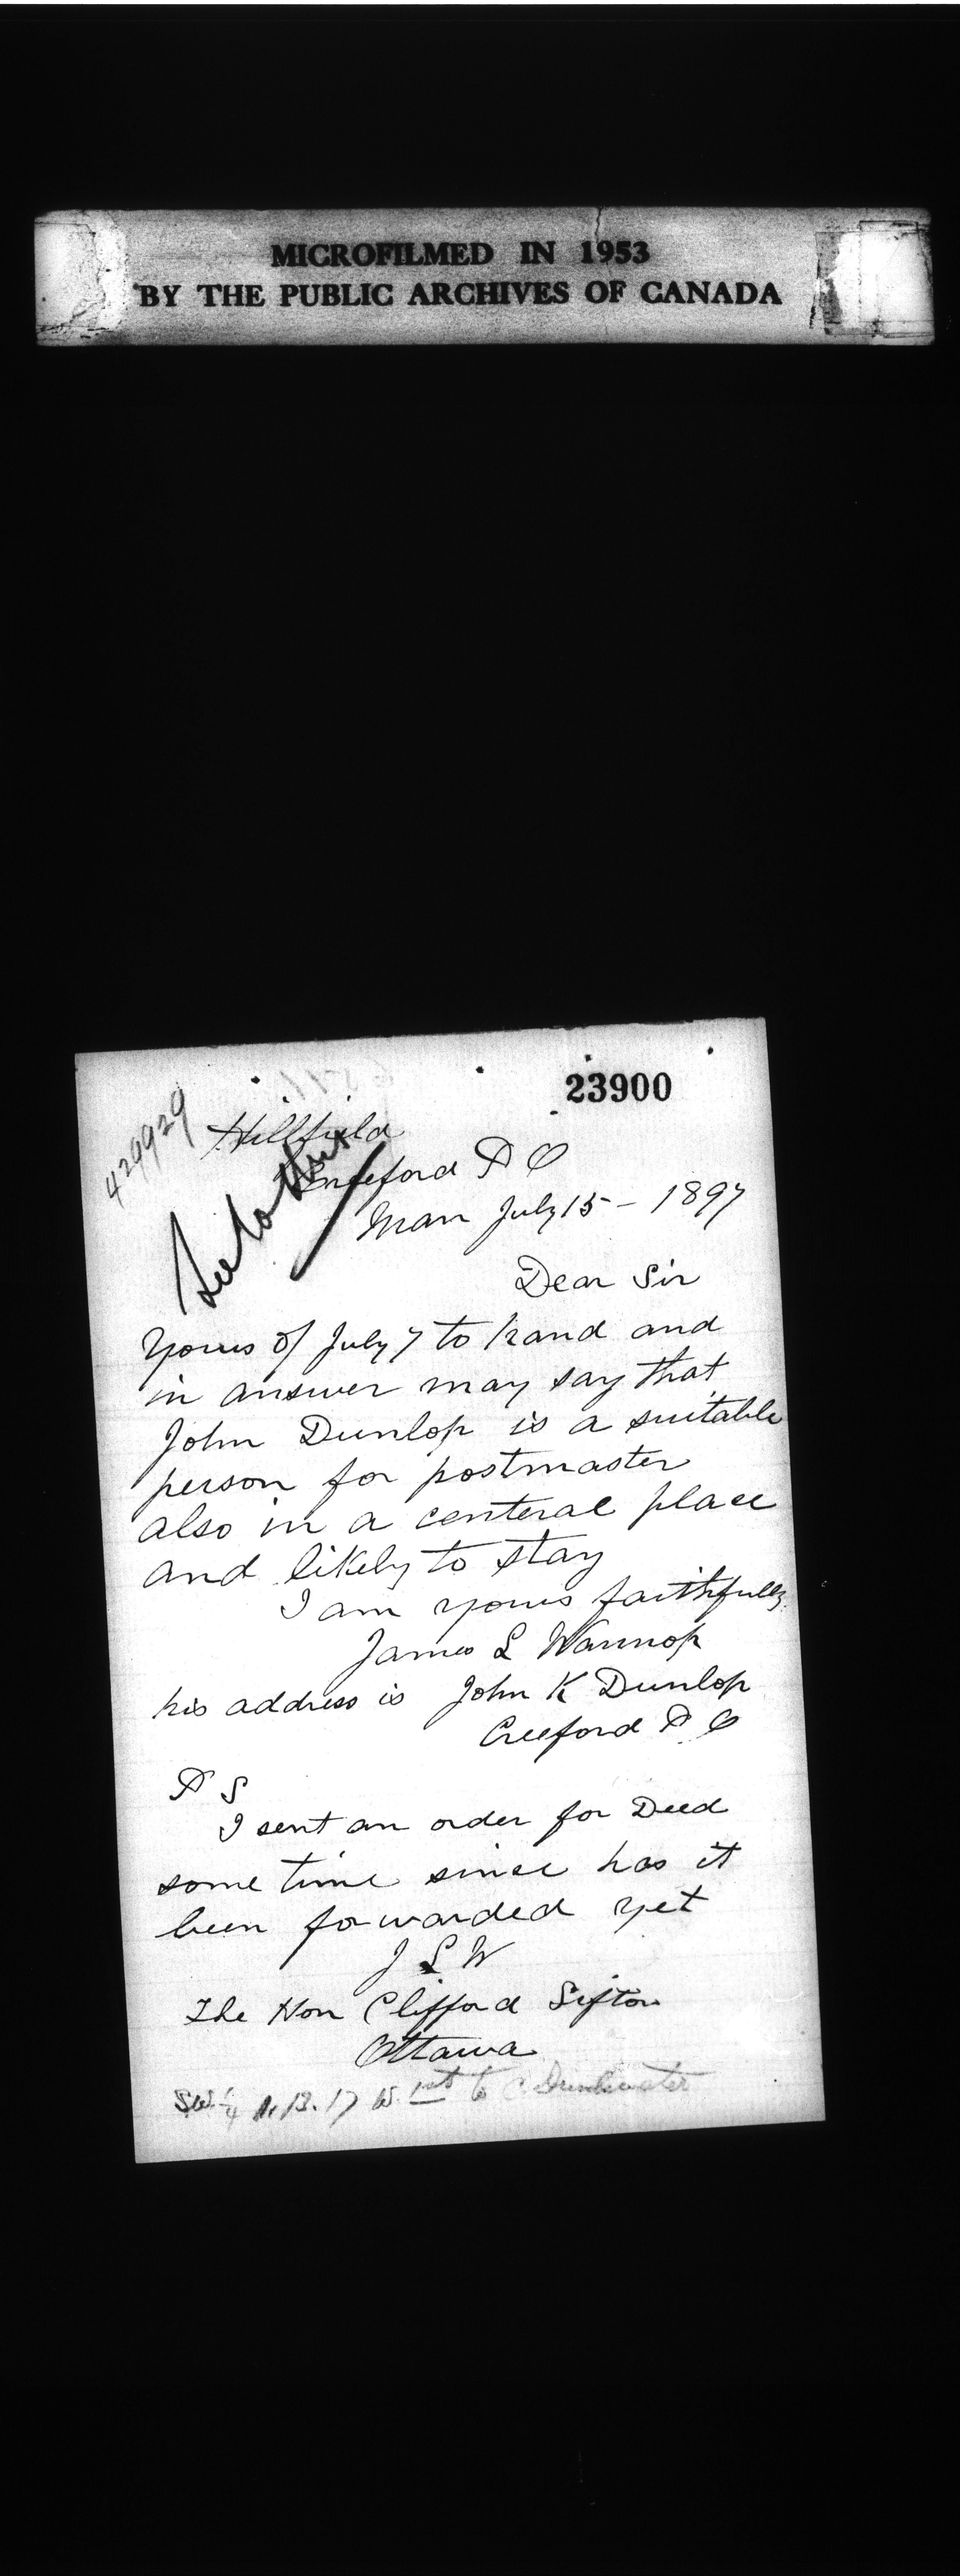 MICROFILMED IN 1953
BY THE PUBLIC ARCHIVES OF CANADA
23900
429929
Hillfield
Creeford P O
Man July 15 - 1897
Dear Sir
Yours of July 7 to hand and
in answer may say that
John Dunlop is a suitable
person for postmaster
also in a centeral place
and likely to stay
I am yours faithfully
James L Wannop
his address is John K Dunlop
Creeford P O
P S
I sent an order for Deed
some time since has it
been forwarded yet
J L W
The Hon Clifford Sifton
Ottawa
SW 1/4 . 13. 17 W. 1st to C. Drinkwater